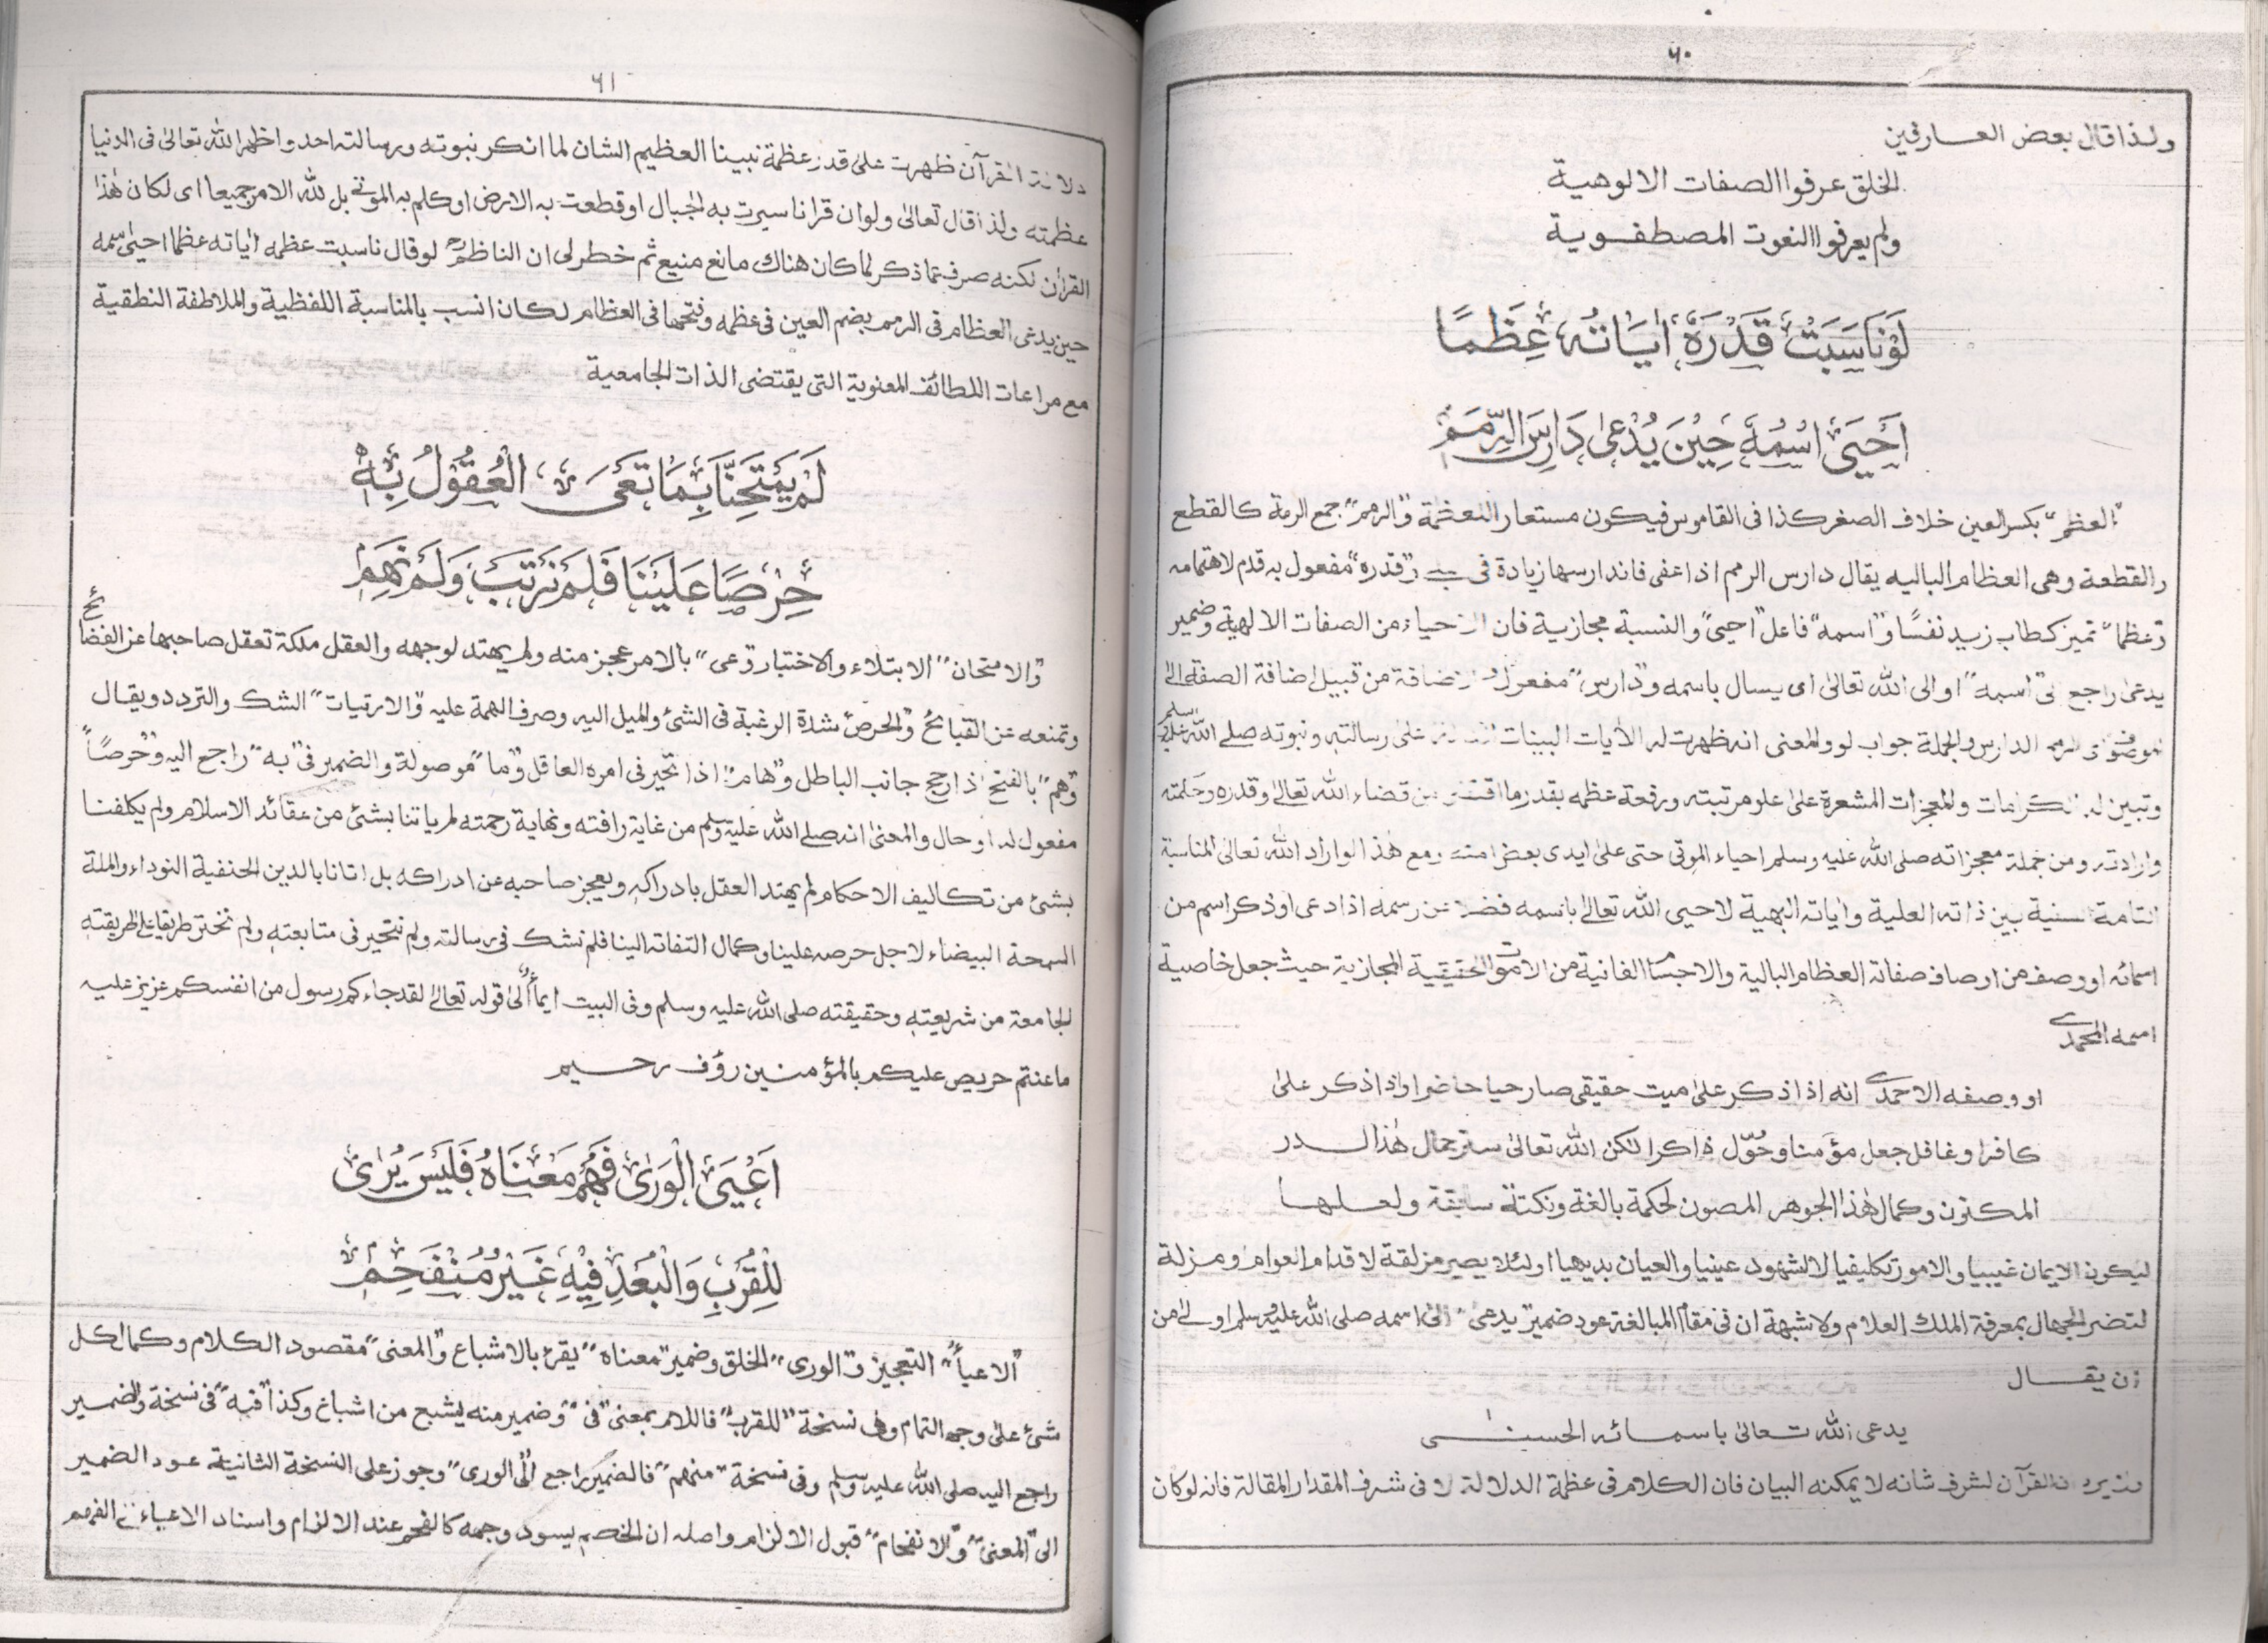 ٦٠
ولذا قال بعض العارفين
الخلق عرفوا الصفات الالوهية
ولم يعرفوا النعوت المصطفوية
لَوْنَاسَبَتْ قَدْرَهٗ اٰيَاتُهٗ عِظَمًا
اَحْيَىٰ اسْمُهٗ حِيْنَ يُدْعٰى دَارِسَ الرِّمَمِ
"العظم" بكسر العين خلاف الصغر كذا فى القاموس فيكون مستعارا للعظمة و"الرمم" جمع الرمة كالقطع
والقطعة وهى العظام الباليه يقال دارس الرمم اذا عفى فاندارسها زيادة فى و"قدره" مفعول به قدم لاهتمامه
و"عظما" تميز كطاب زيد نفسًا و"اسمه" فاعل "احيى" والنسبة مجازية فان الاحياء من الصفات الالهية وضمير
يدعى راجع الى "اسمه" او الى الله تعالىٰ اى يسال باسمه و"دارس" مفعول والاضافة من قبيل اضافة الصفة الى
الموصوف اى الرمم الدارس والجملة جواب لو والمعنى انه ظهرت له الاٰيات البينات على رسالته ونبوته صلے الله عليه وسلم
وتبين له الكرامات والمعجزات المشعرة على علو مرتبته ورفعة عظمه بقدر ما اقتضى من قضاء الله تعالىٰ وقدره وحكمته
وارادته ومن جملة معجزاته صلى الله عليه وسلم احياء الموتى حتى على ايدى بعض امته ومع هٰذا لو اراد الله تعالىٰ المناسبة
التامة السنية بين ذاته العلية واٰياته البهية لاحيى الله تعالىٰ باسمه فضلا عن رسمه اذا دعى او ذكر اسم من
اسمائه او وصف من اوصاف صفاته العظام البالية والاجسام الفانية من الاموات الحقيقية المجازية حيث جعل خاصية
اسمه المحمدے
او وصفه الاحمدے انه اذا ذكر على ميت حقيقى صار حيا حاضرا واذا ذكر علىٰ
كافر او غافل جعل مؤمنا وحُوّل ذاكرا لكن الله تعالىٰ ستر جمال هٰذا الـدر
المكنون وكمال هٰذا الجوهر المصون لحكمة بالغة ونكتة سابقة ولعلها
ليكون الايمان غيبيا والامور تكليفيا لا الشهود عينيا والعيان بديهيا اولئلا يصير مزلقة لاقدام العوام ومزلة
لتضر الجهال بمعرفة الملك العلام ولا شبهة ان فى مقام المبالغة عود ضمير "يدعى" الى اسمه صلى الله عليه وسلم اولىٰ من
ان يقـال
يدعى الله تعالىٰ باسمائه الحسنىٰ
القرآن لشرف شانه لا يمكنه البيان فان الكلام فى عظمة الدلالة لا فى شرف المقدار المقالة فانه لو كان
٦١
دلالة القرآن ظهرت علىٰ قدر عظمة نبينا العظيم الشان لما انكر نبوته ورسالته احد واظهر الله تعالىٰ فى الدنيا
عظمته ولذا قال تعالىٰ ولو ان قرانا سيرت به الجبال او قطعت به الارض او كلم به الموتى بل لله الامر جميعا اى لكان هٰذا
القرٰان لكنه صرف عما ذكر لما كان هناك مانع منيع ثم خطر لى ان الناظم لو قال ناسبت عظمه اٰياته عظما احيىٰ اسمه
حين يدعى العظام فى الرمم بضم العين فى عظمه وفتحها فى العظام لكان انسب بالمناسبة اللفظية والملاطفة النطقية
مع مراعات اللطائف المعنوية التى يقتضى الذات الجامعية
لَمْ يَمْتَحِنَّا بِمَا تَعْىَ الْعُقُوْلُ بِهٖ
حِرْصًا عَلَيْنَا فَلَمْ نَرْتَبْ وَلَمْ نَهِمِ
و"الامتحان" الابتلاء والاختبار و"عى" بالامر عجز منه ولم يهتد لوجهه والعقل ملكة تعقل صاحبها عن الفضائح
وتمنعه عن القبائح و"الحرص" شدة الرغبة فى الشئ والميل اليه وصرف الهمة عليه و"الارتيات" الشك والتردد ويقال
"وهم" بالفتح اذا رجح جانب الباطل و"هام" اذا تحير فى امره العاقل و"ما" موصولة والضمير فى "به" راجع اليه و"حرصًا"
مفعول له او حال والمعنىٰ انه صلے الله عليه وسلم من غاية رافته ونهاية رحمته لم ياتنا بشئ من عقائد الاسلام ولم يكلفنا
بشئ من تكاليف الاحكام لم يهتد العقل بادراكه ويعجز صاحبه عن ادراكه بل اتانا بالدين الحنفية النوداء والملة
السمحة البيضاء لاجل حرصه علينا وكمال التفاته الينا فلم نشك فى رسالته ولم نتحير فى متابعته ولم نختر طريقا على طريقته
الجامعة من شريعته وحقيقته صلى الله عليه وسلم وفى البيت ايماءٌ الىٰ قوله تعالىٰ لقد جاءكم رسول من انفسكم عزيز عليه
ما عنتم حريص عليكم بالمؤمنين رؤف رحيم
اَعْيَىَ الْوَرٰى فَهْمُ مَعْنَاهُ فَلَيْسَ يُرٰى
لِلْقُرْبِ وَالْبُعْدِ فِيْهِ غَيْرُ مُنْفَحِمٖ
"الاعياء" التعجيز و"الورى" الخلق وضمير "معناه" يقرئ بالاشباع و"المعنى" مقصود الكلام وكمال كل
شئ علىٰ وجه التمام وفى نسخة "للقرب" فاللام بمعنى "فى" وضمير منه يشبع من اشباغ وكذا "فيه" فى نسخة والضمير
راجع اليه صلى الله عليه وسلم وفى نسخة "منهم" فالضمير راجع الى "الورى" وجوز على النسخة الثانية عود الضمير
الى "المعنىٰ" و"الانفحام" قبول الالزام واصله ان الخصم يسود وجهه كالفحم عند الالزام واسناد الاعياء الفهم